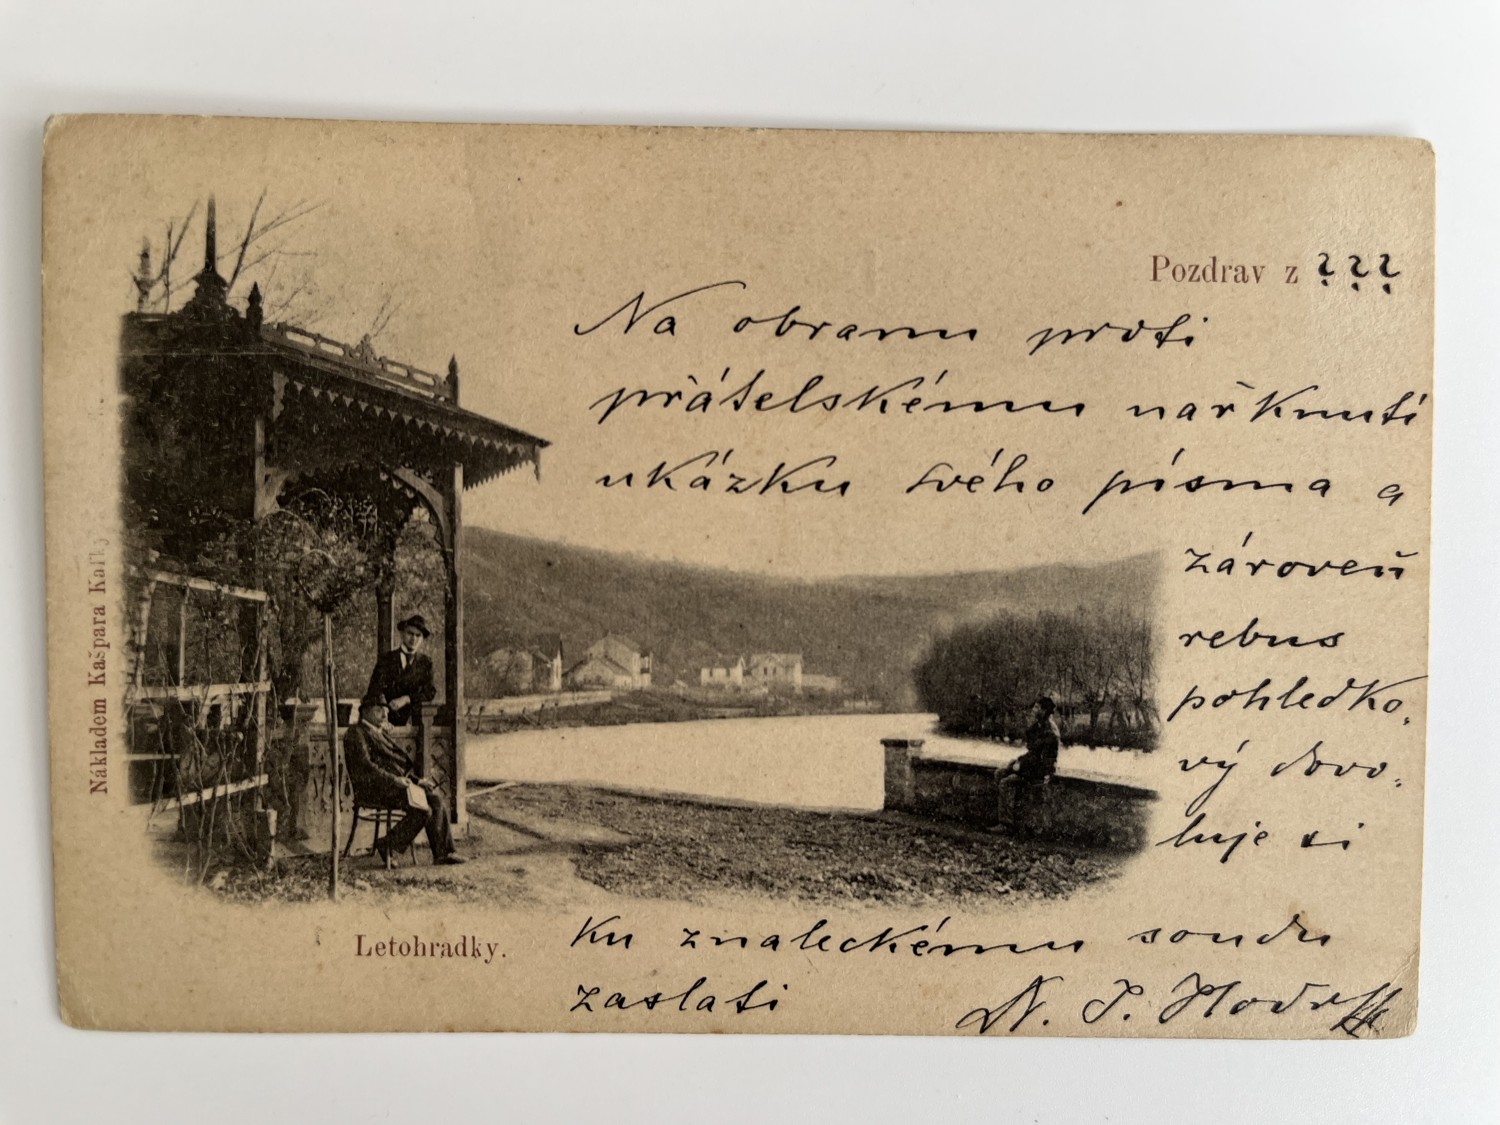 Pozdrav z ???
Na obranu proti
přátelskému nařknutí
ukázku svého písma a
zároveň
rebus
pohledko-
vý dovo-
luje si
ku znaleckému soudu
zaslati
Letohradky.
Nákladem Kašpara